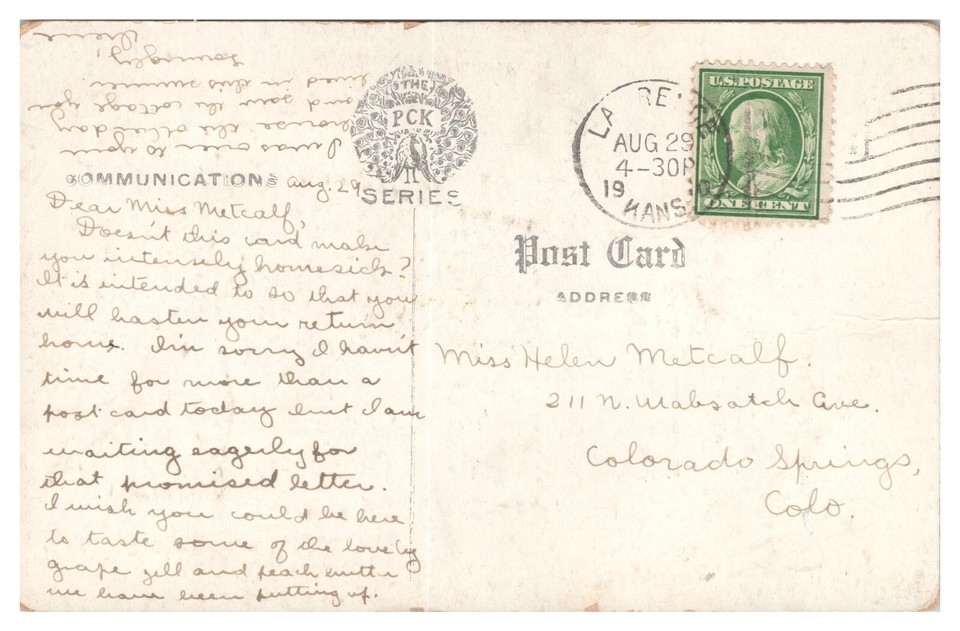 THE
PCK
SERIES
COMMUNICATIONS
Aug. 29
Dear Miss Metcalf,
Doesn't this card make
you intensely homesick?
It is intended to so that you
will hasten your return
home. I'm sorry I haven't
time for more than a
post-card today but I am
waiting eagerly for
that promised letter.
I wish you could be here
to taste some of the lovely
grape jell and peach butter
we have been putting up.
I was over to your
house the other day
and saw the cottage you
lived in this summer
Lovingly,
Irene
LAWRENCE
AUG 29
4-30P
19
KANS.
U.S. POSTAGE
ONE CENT
Post Card
ADDRESS
Miss Helen Metcalf.
211 N. Wahsatch Ave.
Colorado Springs,
Colo.